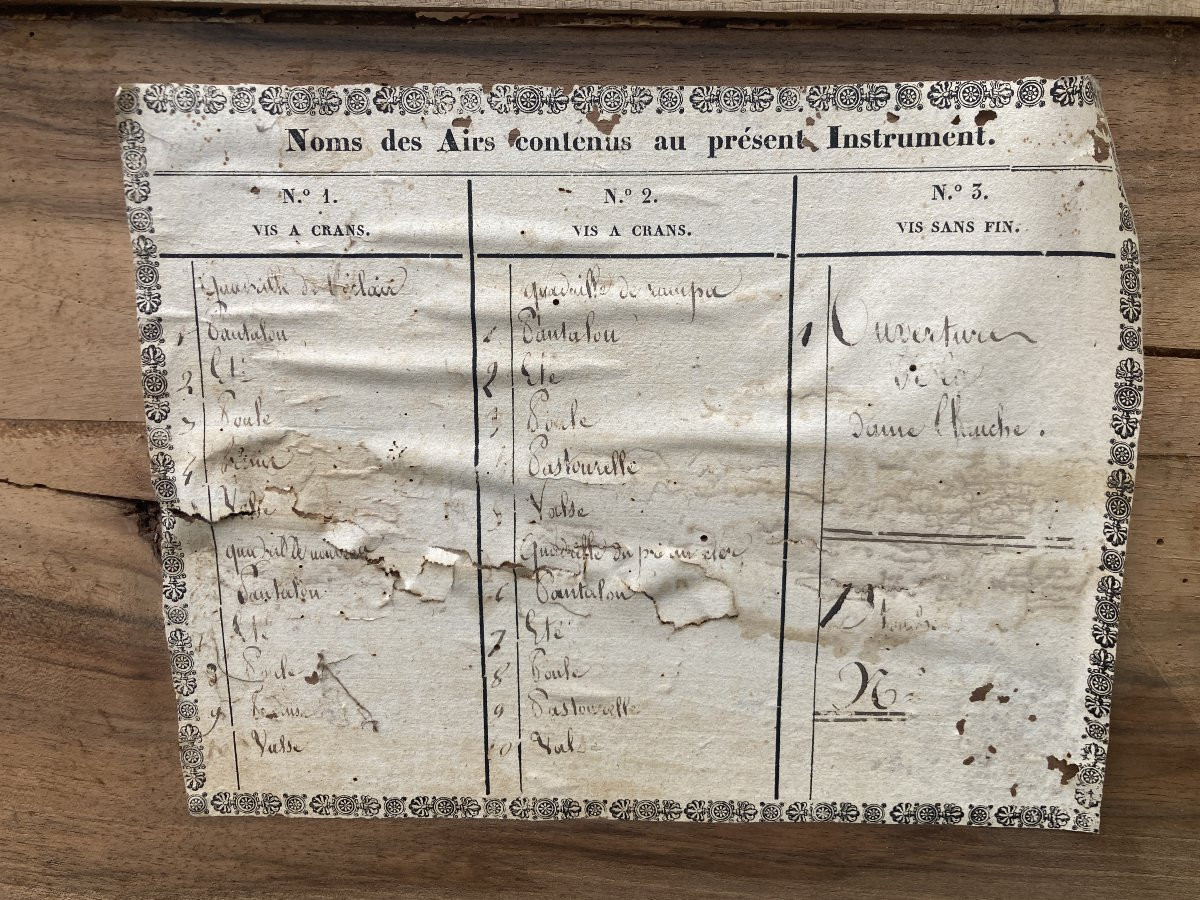 Noms des Airs contenus au présent Instrument.
N.º 1.
VIS A CRANS.
Quadrille de l'éclair
1 Pantalon
2 Eté
3 Poule
4 Trénis
Valse
quadrille
Pantalon
Eté
8 Poule
9
Valse
N.º 2.
VIS A CRANS.
quadrille de
1 Pantalon
2 Eté
3 Poule
Pastourelle
5 Valse
Quadrille du pré aux clers
6 Pantalon
7 Eté
8 Poule
9 Pastourelle
10 Valse
N.º 3.
VIS SANS FIN.
1 Ouverture
De la
dame blanche.